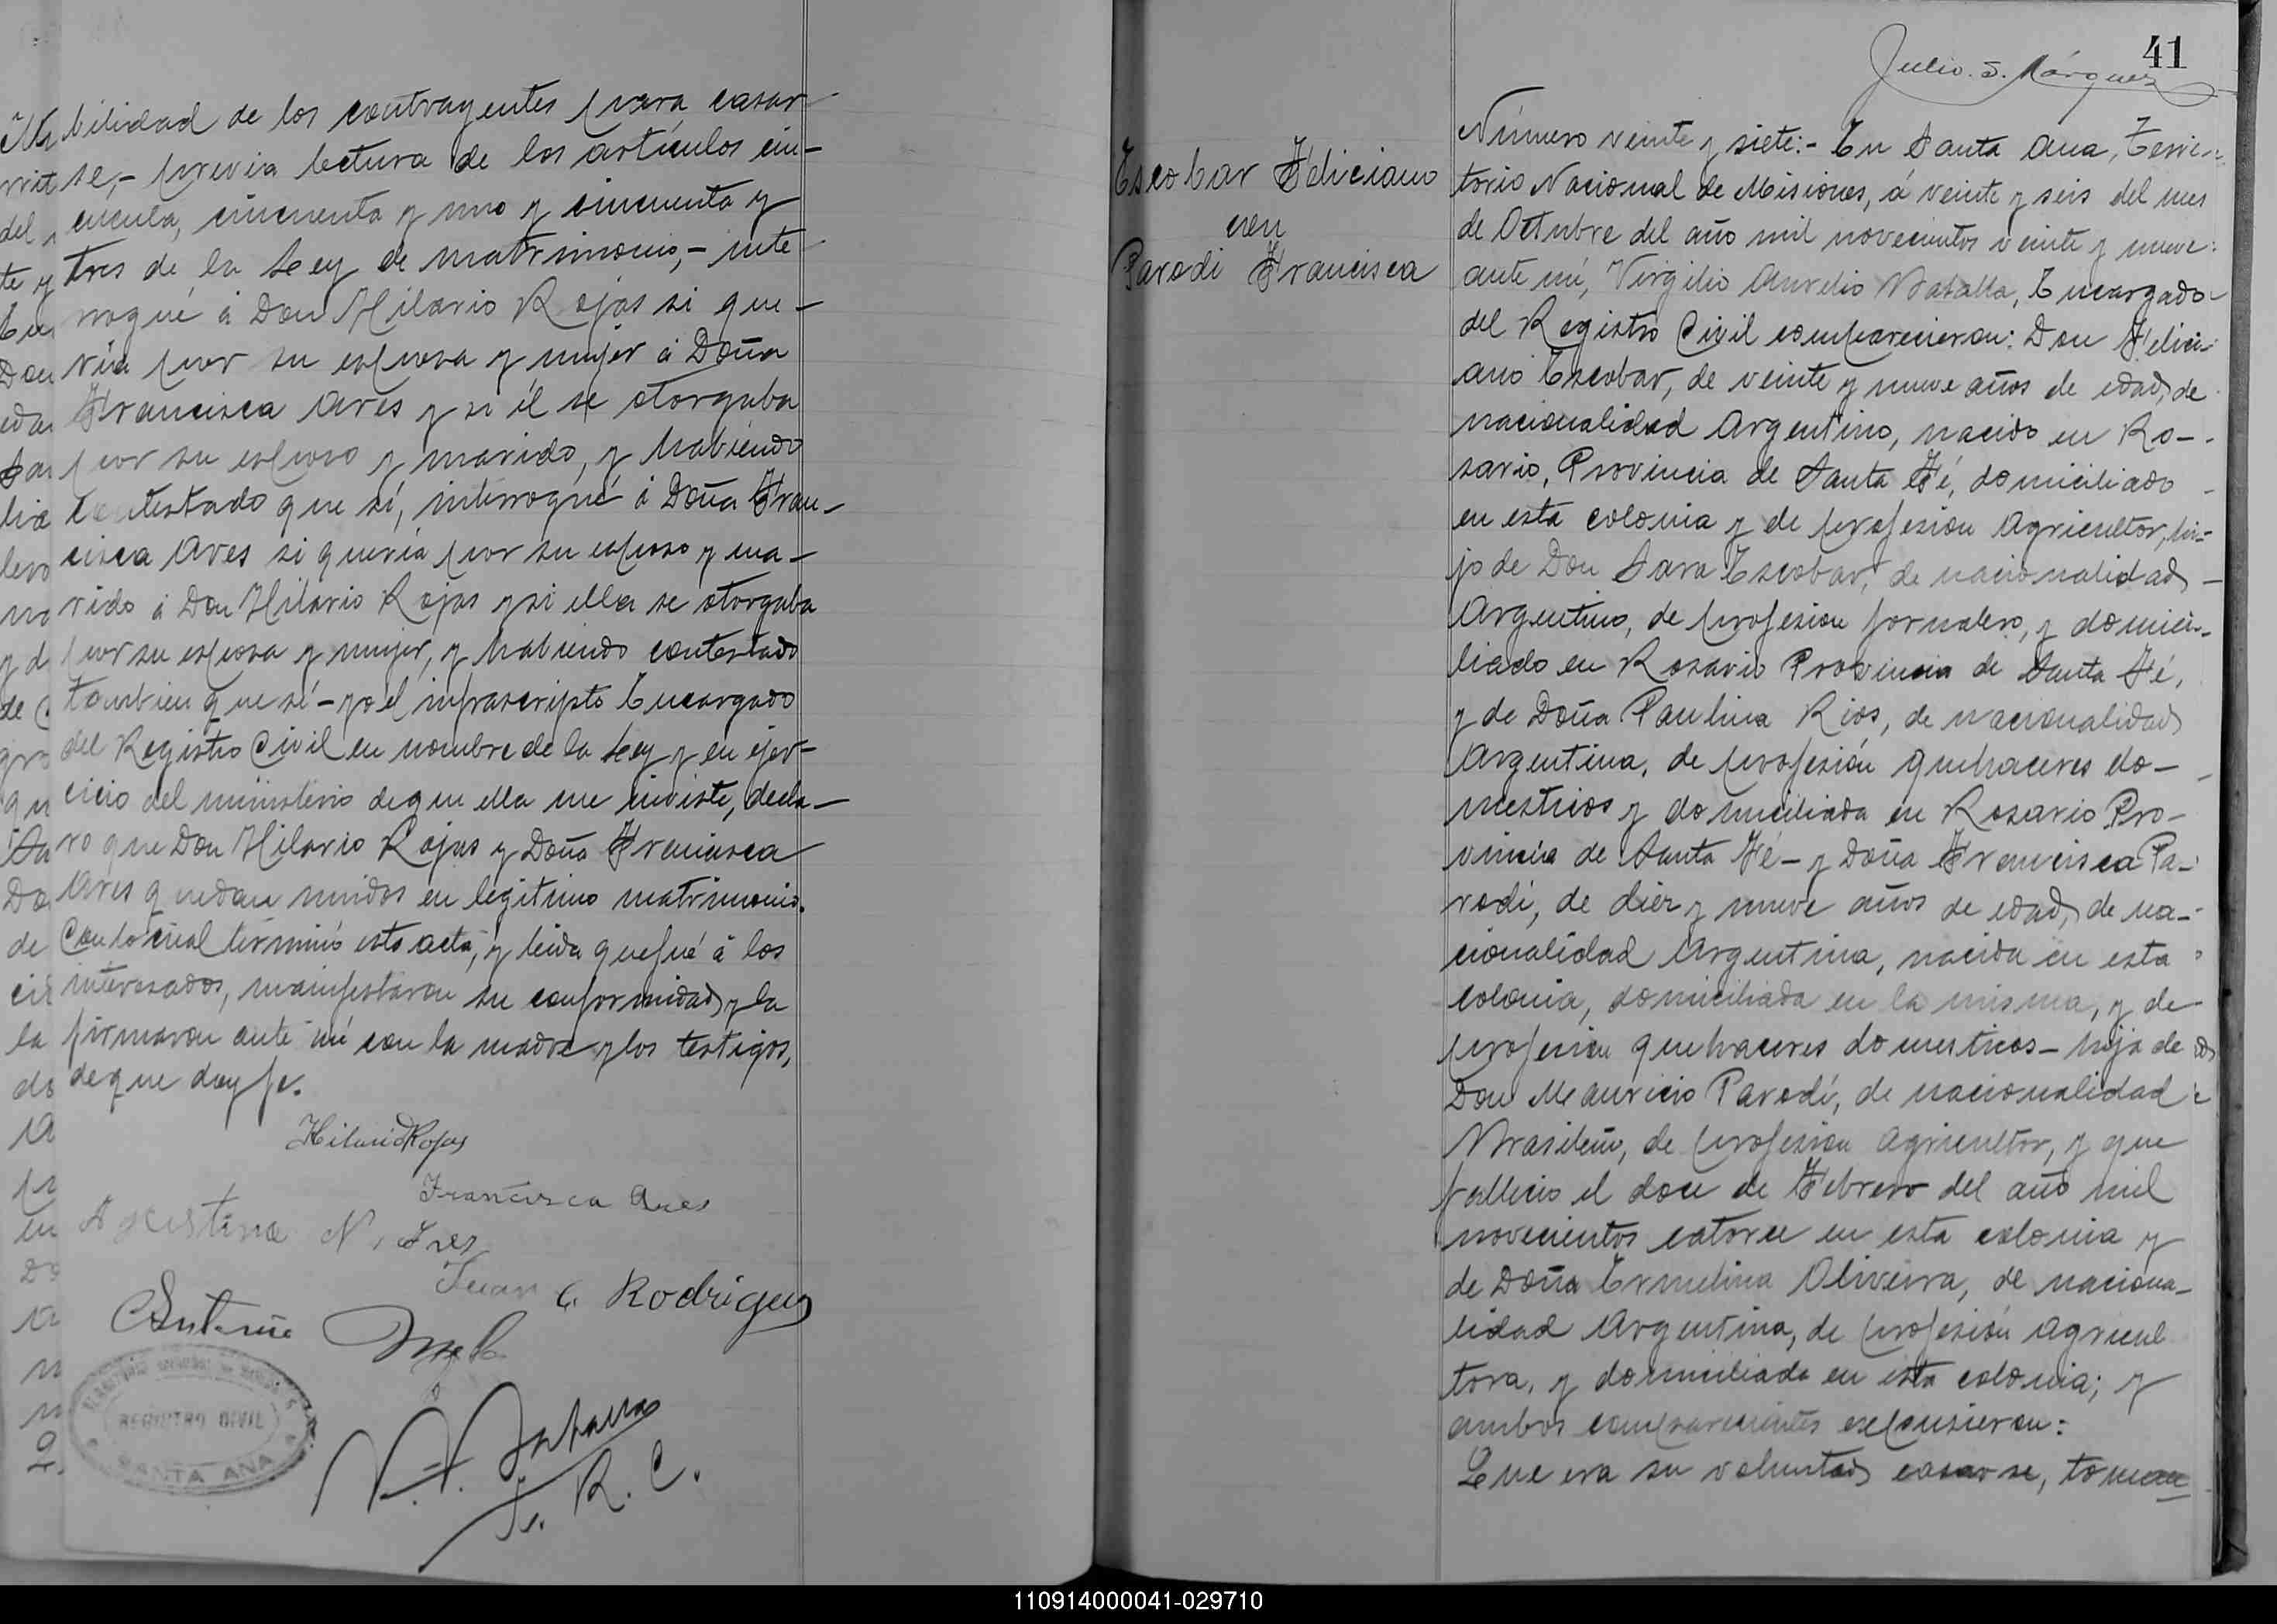 bilidad de los contrayentes para casar
se,- previa lectura de los artículos cin-
cuenta, cincuenta y uno y cincuenta y
tres de la Ley de matrimonio,- inte
rrogué á Don Hilario Rojas si que-
ría por su esposa y mujer á Doña
Francisca Ares y si él se otorgaba
por su esposo y marido, y habiendo
contestado que sí, interrogué á Doña Fran-
cisca Ares si quería por su esposo y ma-
rido á Don Hilario Rojas y si ella se otorgaba
por su esposa y mujer, y habiendo contestado
tambien que sí - yo el infrascripto Encargado
del Registro Civil en nombre de la Ley y en ejer-
cicio del ministerio de que ella me inviste, decla-
ro que Don Hilario Rojas y Doña Francisca
Ares quedan unidos en legitimo matrimonio.
Con lo cual terminó esta acta, y leida que fué á los
interesados, manifestaron su conformidad y la
firmaron ante mí con la madre y los testigos,
de que doy fe.
Hilario Rojas
Francisca Ares
Agustina N. Ares
Juan C. Rodriguez
Antonio
REGISTRO CIVIL
SANTA ANA
E. R. C.
41
Julio S. Márquez
Escobar Feliciano
con
Parodi Francisca
Número veinte y siete:- En Santa Ana, Terri-
torio Nacional de Misiones, á veinte y seis del mes
de Octubre del año mil novecientos veinte y nueve:
ante mí, Virgilio Aurelio Encargado
del Registro Civil comparecieron: Don Felici-
ano Escobar, de veinte y nueve años de edad, de
nacionalidad Argentino, nacido en Ro-
sario, Provincia de Santa Fé, domiciliado
en esta colonia y de profesion Agricultor, hi-
jo de Don Sara Escobar, de nacionalidad
Argentino, de profesion jornalero, y domici-
liado en Rosario Provincia de Santa Fé,
y de Doña Paulina Rios, de nacionalidad
Argentina, de profesión quehaceres do-
mesticos y domiciliada en Rosario Pro-
vincia de Santa Fé - y Doña Francisca Pa-
rodi, de diez y nueve años de edad, de na-
cionalidad Argentina, nacida en esta
colonia, domiciliada en la misma, y de
profesion quehaceres domesticos - hija de
Don Mauricio Parodí, de nacionalidad
Brasileño, de profesion Agricultor, y que
fallecio el doce de Febrero del año mil
novecientos catorce en esta colonia y
de Doña Ermelina Oliveira, de naciona-
lidad Argentina, de profesión agricul
tora, y domiciliada en esta colonia; y
ambos comparecientes expusieron:
Que era su voluntad casarse, toman
110914000041-029710